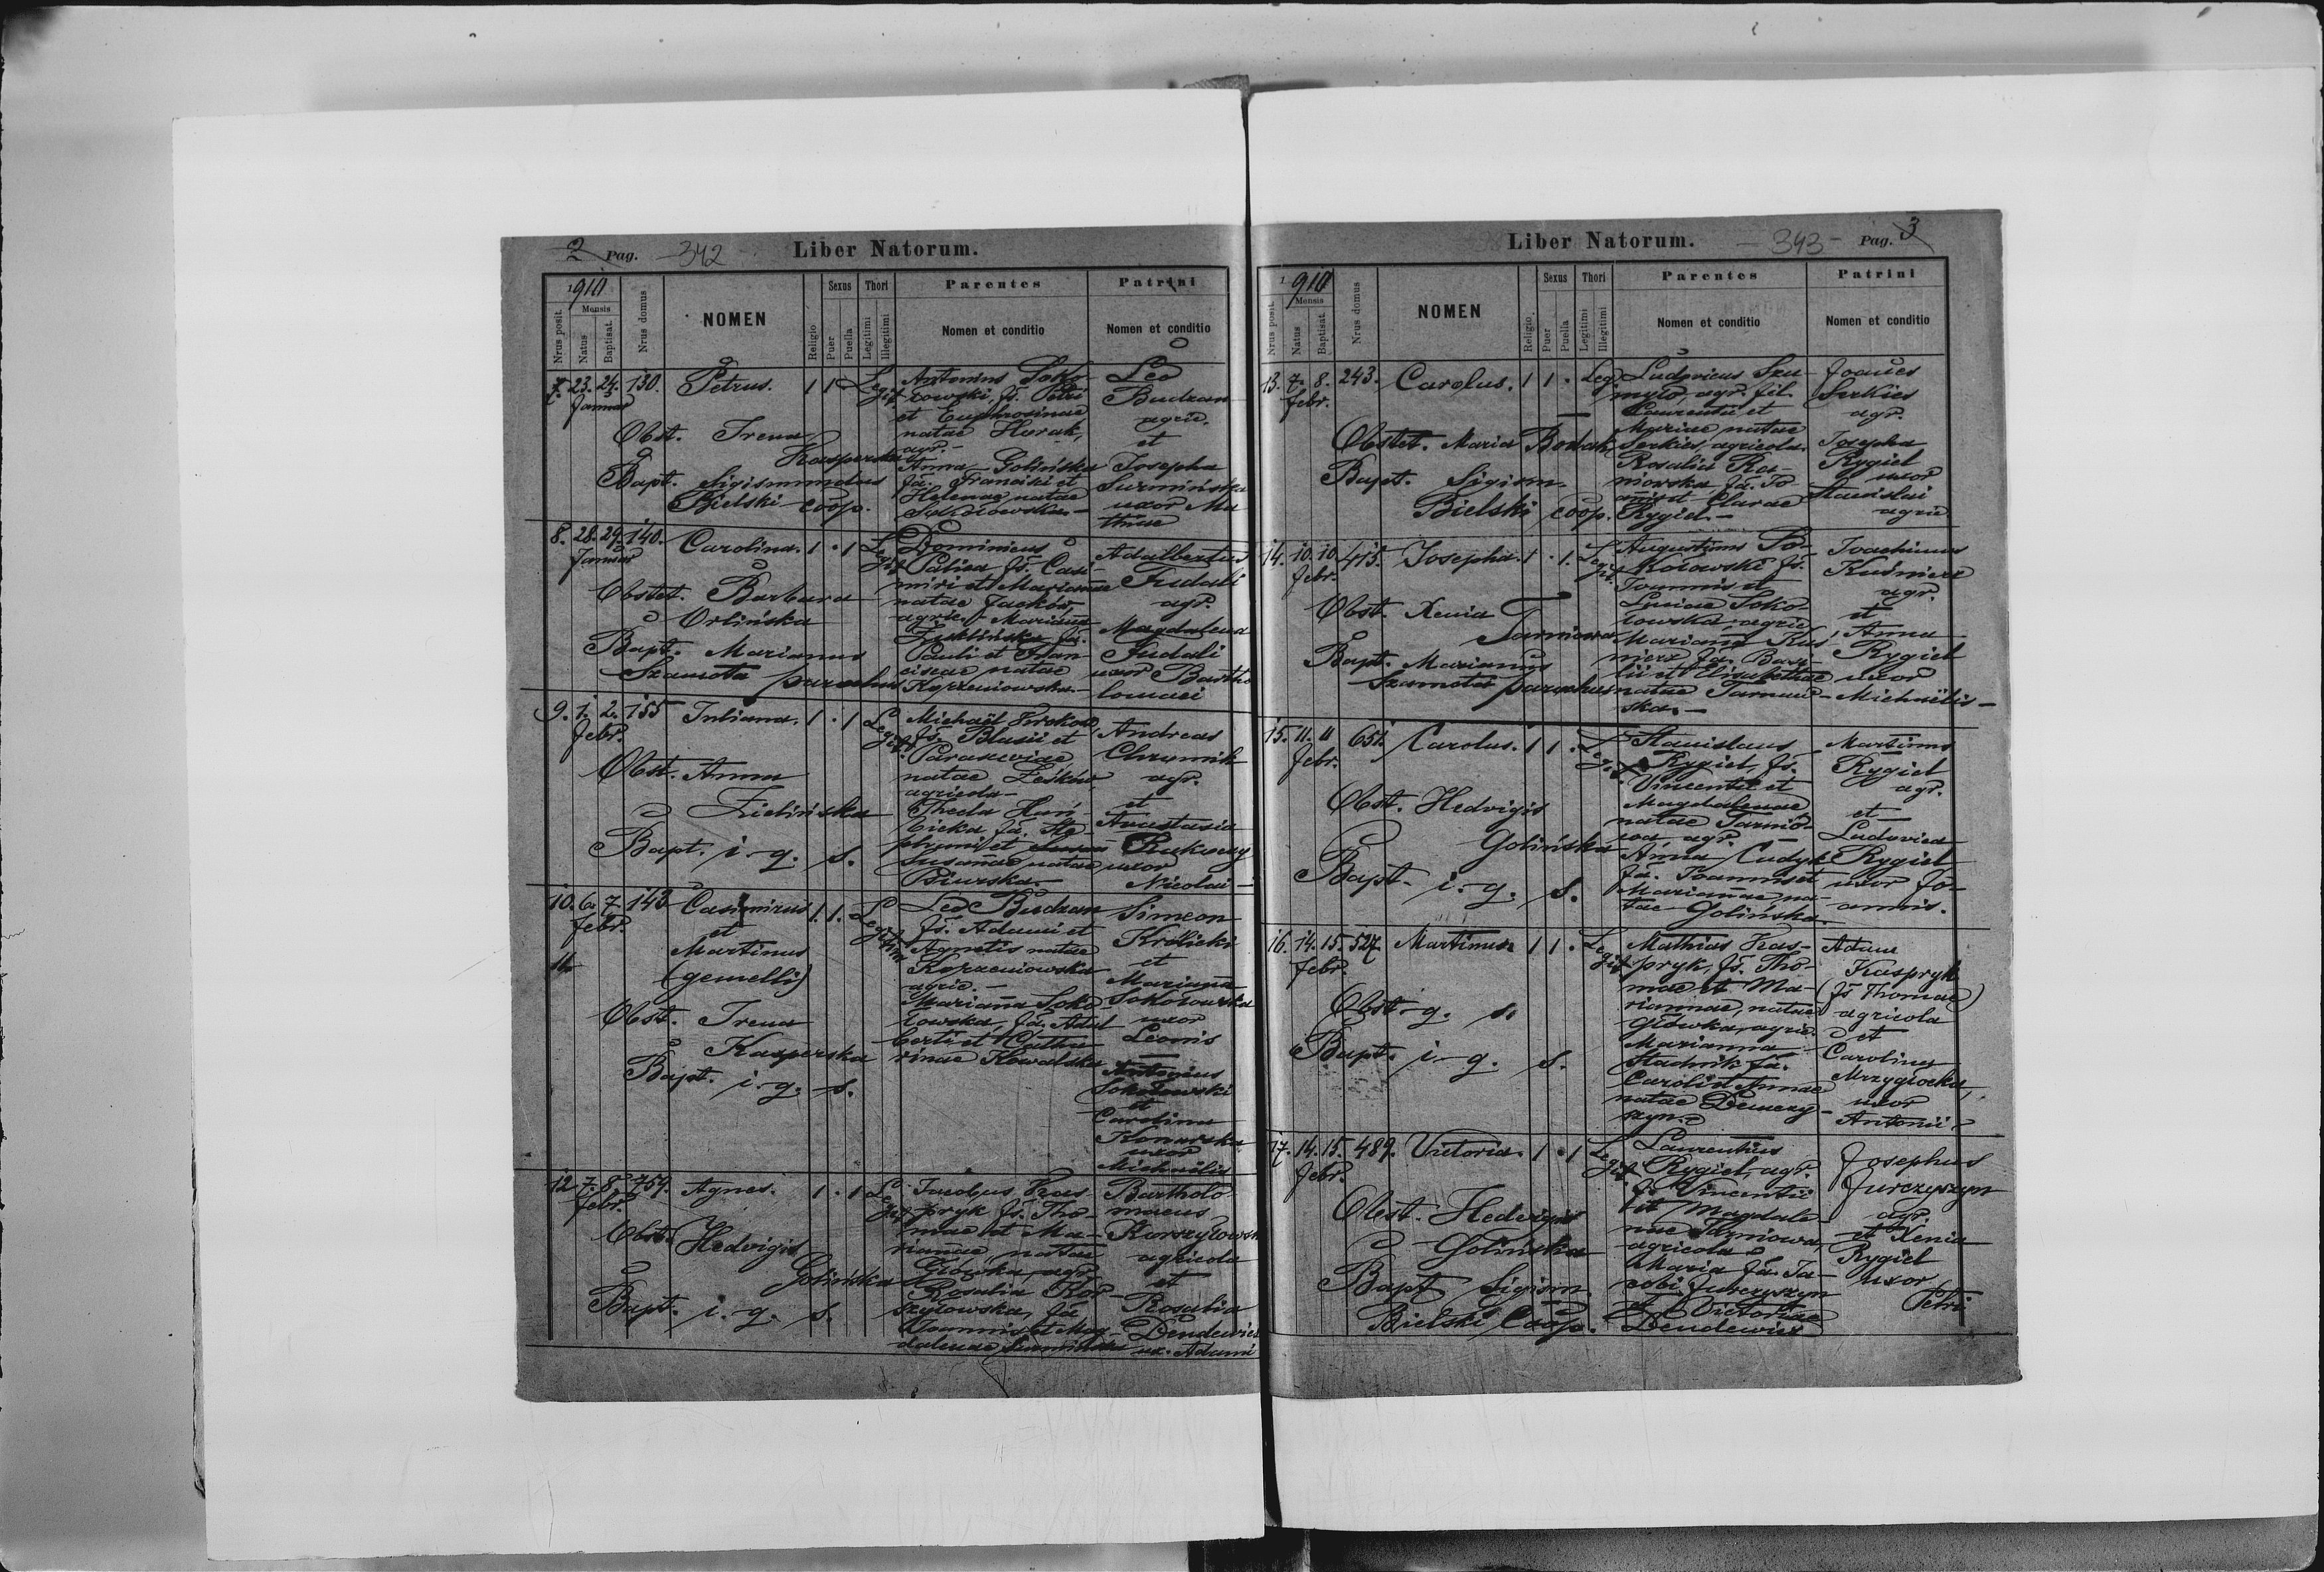 2 Pag. -342- Liber Natorum.
1910
Mensis
Nrus posit.
Natus
Baptisat.
Nrus domus
NOMEN
Religio
Sexus
Puer
Puella
Thori
Legitimi
Illegitimi
Parentes
Nomen et conditio
Patrini
Nomen et conditio
7. 23. 24. 130. Petrus. 1 1 Legit.
Januar
Obst. Irena
Kasperska
Bapt. Sigismundus
Bielski coop.
Antonius Soko-
łowski, fs. Petri
et Euphrosinae
natae Horak,
agr.
Anna Golińska
fa. Francisci et
Helenae natae
Sokołowska
Leo
Budzan
agric.
et
Josepha
Surmińska
uxor Ma
thiae
8. 28. 29. 140. Carolina. 1 . 1 Legit
Januar
Obstet. Barbara
Orlińska
Bapt. Marianus
Szamota parochus
Dominicus
Palica fs. Casi-
miri et Mariannae
natae Jacków,
agric. Marianna
fa.
Pauli et Fran-
ciscae natae
Korzeniowska.
Adalbertus
Fudali
agr.
Magdalena
Fudali
uxor Bartho
lomaei
9. 1. 2. 155 Juliana. 1 . 1 Legit.
febr.
Obst. Anna
Zielińska
Bapt. i. q. s.
Michaël
fs. Blasii et
Parasceviae
natae Leśków
agricola
Thecla Hań-
bicka fa. Ste-
phani et
Susannae natae
Andreas
Chrzynik
agr.
et
Anastasia
uxor
Nicolai
10. 6. 7. 143 Casimirus 1. 1. Legitim
febr.
et
11
Martinus
(gemelli)
Obst. Irena
Kasperska
Bapt. i. q. s.
Leo Budzan
fs. Adami et
Agnetis natae
Korzeniowska
agric.
Marianna Soko
łowska, fa. Adal
berti et Catha
rinae Kowalska
Simeon
Królicki
et
Marianna
Sokołowska
uxor
Leonis
Antonius
Sokołowski
et
Carolina
Konarska
uxor
Michaëlis
12 7. 8. 759. Agnes. 1 . 1 Legit
febr.
Obst. Hedvigis
Golińska
Bapt. i. q. s.
Jacobus Kas
pryk fs. Tho-
mae et Ma-
riannae, natae
Główka, agr.
Rosalia Kor
szyłowska, fa
Joannis et Mag-
dalenae Surmińska
Bartholo
maeus
Korszyłowski
agricola
et
Rosalia
Dendewicz
ux. Adami
Liber Natorum. -343- Pag. 3
1910
Mensis
Nrus posit.
Natus
Baptisat.
Nrus domus
NOMEN
Religio
Sexus
Puer
Puella
Thori
Legitimi
Illegitimi
Parentes
Nomen et conditio
Patrini
Nomen et conditio
13. 7. 8. 243. Carolus. 1 1 . Leg.
febr.
Obstet. Maria Bodak
Bapt. Sigism.
Bielski coop.
Ludovicus Szu-
myło, agr. fil.
Laurentii et
Mariae natae
Serkies, agricola.
Rosalia Ra-
niowska fa. Jo
annis et Clarae
Rygiel.-
Joannes
Serkies
agr.
Josepha
Rygiel
uxor
Stanislai
agric
14. 10. 10 415. Josepha. 1 . 1. Legit.
febr.
Obst. Xenia
Tarniowa
Bapt. Marianus
Szamota parochus
Augustinus So-
kołowski fs.
Joannis et
Luciae Soko-
łowska, agric
Marianna Kuś
nierz fa. Basi-
lii et Elisabethae
natae Tarnaw-
ska.-
Joachimus
Kuśnierz
agr.
et
Anna
Rygiel
uxor
Michaëlis-
15. 11. 11 651. Carolus. 1 1 . Legit
febr.
Obst. Hedvigis
Golińska
Bapt. i. q. s.
Stanislaus
Rygiel, fs.
Vincentii et
Magdalenae
natae Tarnio-
wa agr.
Anna Cudyk
fa. Joannis et
Mariannae na-
tae Golińska.
Martinus
Rygiel
agr.
et
Ludovica
Rygiel
uxor Jo-
annis.
16. 14. 15. 527. Martinus. 1 1 . Legit
febr.
Obst. q. s.
Bapt. i. q. s.
Mathias Kas-
pryk, fs. Tho-
mae et Ma-
riannae, natae
Główka, agric.
Marianna
Stadnik fa.
Caroli et Annae
natae Demczy-
szyn.
Adam
Kaspryk
(fs Thomae)
agricola
et
Carolina
Mrzygłocka,
uxor
Antonii.
17. 14. 15. 489. Victoria. 1 . 1 Legit.
febr.
Obst. Hedvigis
Golińska
Bapt Sigism.
Bielski Coop.
Laurentius
Rygiel, agr.
fs. Vincentii
et Magdale-
nae Tarniowa,
agricola
Maria fa. Ja-
cobi Jurczyszyn
et Victoriae
Dendewicz
Josephus
Jurczyszyn
agr.
et Xenia
Rygiel
uxor
Petri